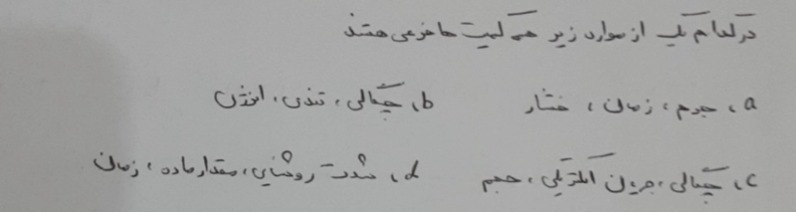 در کدام یک از موارد زیر همه کمیت ها فرعی هستند
a، جرم، زمان، فشار b، چگالی، تندی، انرژی
c، چگالی، جریان الکتریکی، حجم d، شدت روشنایی، مقدار ماده، زمان